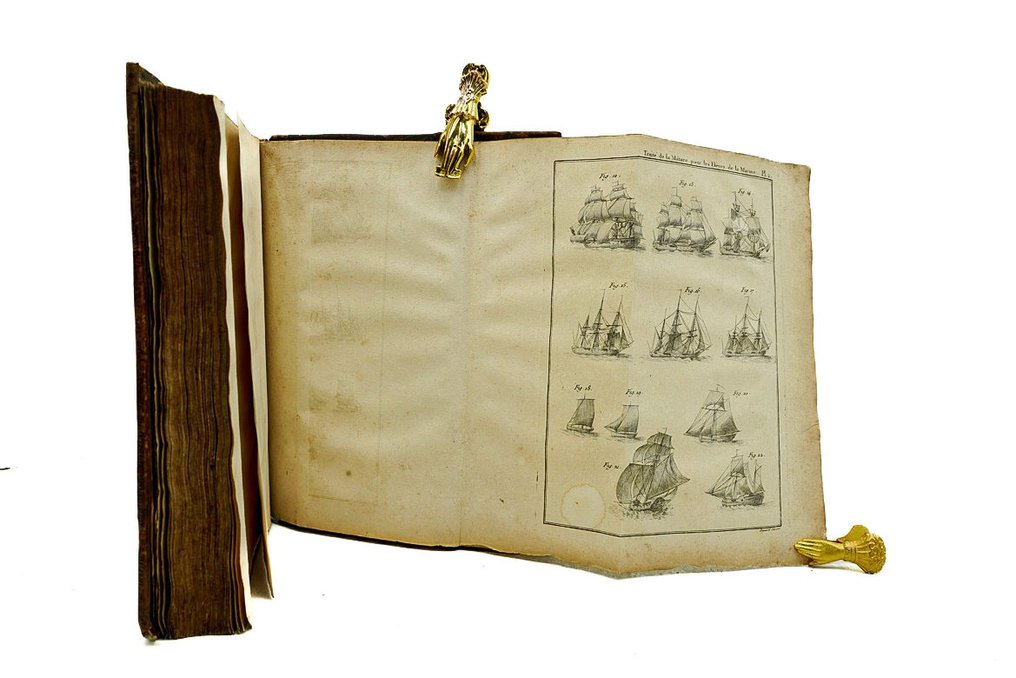 Traité de la Mâture pour les Elèves de la Marine. Pl.
Fig. 12.
Fig. 13.
Fig. 14.
Fig. 15.
Fig. 16.
Fig. 17.
Fig. 18.
Fig. 19.
Fig. 20.
Fig. 21.
Fig. 22.